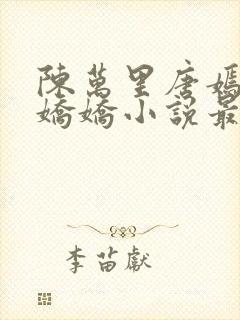 陳萬里唐嫣
嬌嬌小說最
李苗獻